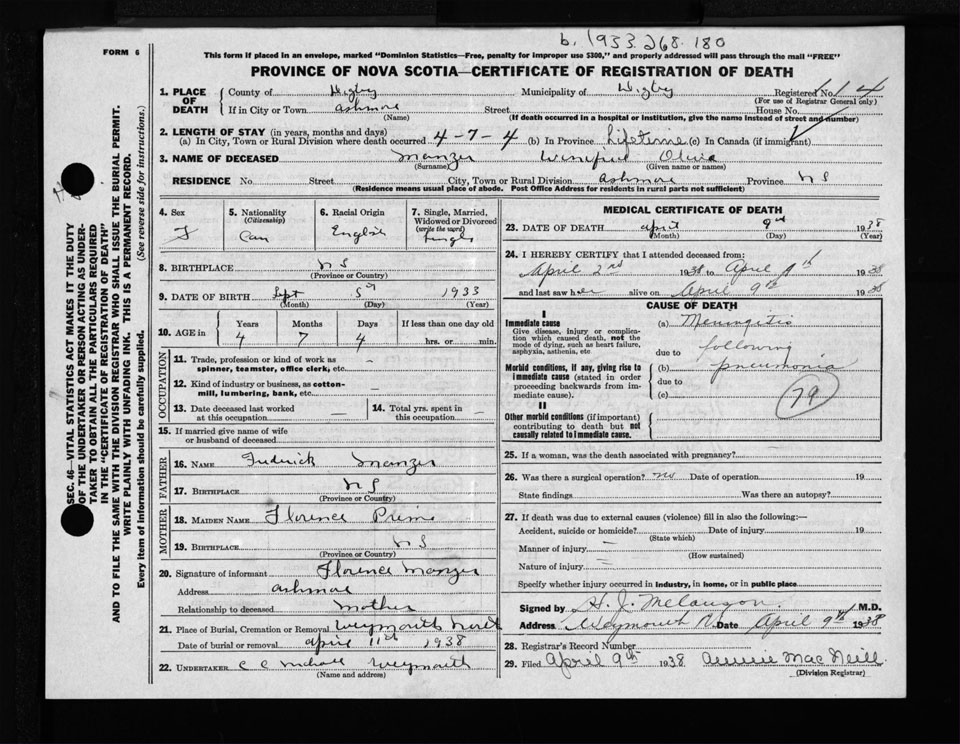 b. 1933. 268. 180
FORM 6
This form if placed in an envelope, marked "Dominion Statistics—Free, penalty for improper use $300," and properly addressed will pass through the mail "FREE"
PROVINCE OF NOVA SCOTIA—CERTIFICATE OF REGISTRATION OF DEATH
SEC. 46—VITAL STATISTICS ACT MAKES IT THE DUTY
OF THE UNDERTAKER OR PERSON ACTING AS UNDER-
TAKER TO OBTAIN ALL THE PARTICULARS REQUIRED
IN THE "CERTIFICATE OF REGISTRATION OF DEATH"
AND TO FILE THE SAME WITH THE DIVISION REGISTRAR WHO SHALL ISSUE THE BURIAL PERMIT.
WRITE PLAINLY WITH UNFADING INK. THIS IS A PERMANENT RECORD.
Every item of Information should be carefully supplied. (See reverse side for instructions.)
1. PLACE OF DEATH
County of Digby Municipality of Digby Registered No. 114
(For use of Registrar General only)
If in City or Town Ashmore Street House No.
(Name) (If death occurred in a hospital or institution, give the name instead of street and number)
2. LENGTH OF STAY (in years, months and days)
(a) In City, Town or Rural Division where death occurred 4-7-4 (b) In Province Lifetime (c) In Canada (if immigrant)
3. NAME OF DECEASED Manzer Winifred Olivia
(Surname) (Given name or names)
RESIDENCE No. Street City, Town or Rural Division Ashmore Province NS
(Residence means usual place of abode. Post Office Address for residents in rural parts not sufficient)
4. Sex F
5. Nationality (Citizenship) Can
6. Racial Origin English
7. Single, Married, Widowed or Divorced (write the word) Single
8. BIRTHPLACE NS
(Province or Country)
9. DATE OF BIRTH Sept 5th 1933
(Month) (Day) (Year)
10. AGE in Years Months Days If less than one day old
4 7 4 hrs. or min.
OCCUPATION
11. Trade, profession or kind of work as spinner, teamster, office clerk, etc. —
12. Kind of industry or business, as cotton-mill, lumbering, bank, etc. —
13. Date deceased last worked at this occupation —
14. Total yrs. spent in this occupation —
15. If married give name of wife or husband of deceased
FATHER
16. NAME Frederick Manzer
17. BIRTHPLACE NS
(Province or Country)
MOTHER
18. MAIDEN NAME Florence Prime
19. BIRTHPLACE NS
(Province or Country)
20. Signature of informant Florence Manzer
Address Ashmore
Relationship to deceased Mother
21. Place of Burial, Cremation or Removal Weymouth North
Date of burial or removal April 11th 1938
22. UNDERTAKER C C Weymouth
(Name and address)
MEDICAL CERTIFICATE OF DEATH
23. DATE OF DEATH April 9th 1938
(Month) (Day) (Year)
24. I HEREBY CERTIFY that I attended deceased from:
April 2nd 1938 to April 9th 1938
and last saw her alive on April 9th 1938
CAUSE OF DEATH
I
Immediate cause
Give disease, injury or complication which caused death, not the mode of dying, such as heart failure, asphyxia, asthenia, etc
(a) Meningitis
due to following
Morbid conditions, if any, giving rise to immediate cause (stated in order proceeding backwards from immediate cause).
(b) pneumonia
due to
(c)
79
II
Other morbid conditions (if important) contributing to death but not causally related to immediate cause.
25. If a woman, was the death associated with pregnancy?
26. Was there a surgical operation? no Date of operation 19
State findings Was there an autopsy?
27. If death was due to external causes (violence) fill in also the following:—
Accident, suicide or homicide? Date of injury 19
(State which)
Manner of injury —
(How sustained)
Nature of injury —
Specify whether injury occurred in Industry, in home, or in public place
Signed by H. J. Melançon M.D.
Address Weymouth N. Date April 9th 1938
28. Registrar's Record Number
29. Filed April 9th 1938 Annie MacNeill
(Division Registrar)